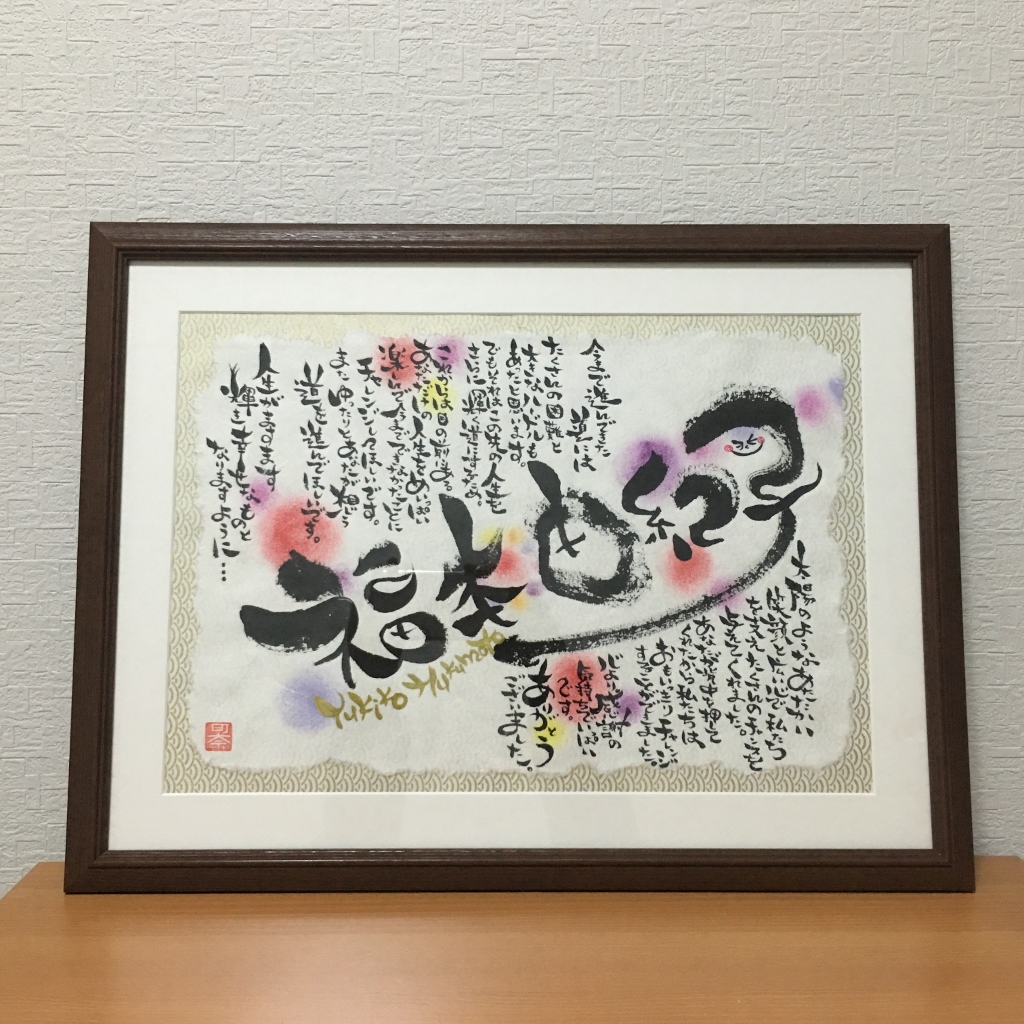 福本由紀子
太陽のようなあたたかい
笑顔と広い心で私たち
を支えたくさんの学びを
与えてくれました。
あなたが背中を押して
くれたから私たちは
おもいっきりチャレンジ
することができました。
心より感謝の
気持ちでいっぱい
です。
ありがとう
ございました。
今まで進んできた
道には
たくさんの困難と
大きなハードルも
あったと思います。
でもそれはこの先の人生を
さらに輝く道にするため。
これからは目の前にある
あなただけの人生をめいっぱい
楽しんで今までできなかったことに
チャレンジしてほしいです。
またゆったりとあなたが想う
道を進んでほしいです。
人生がますます
輝き幸せなものと
なりますように…
可奈